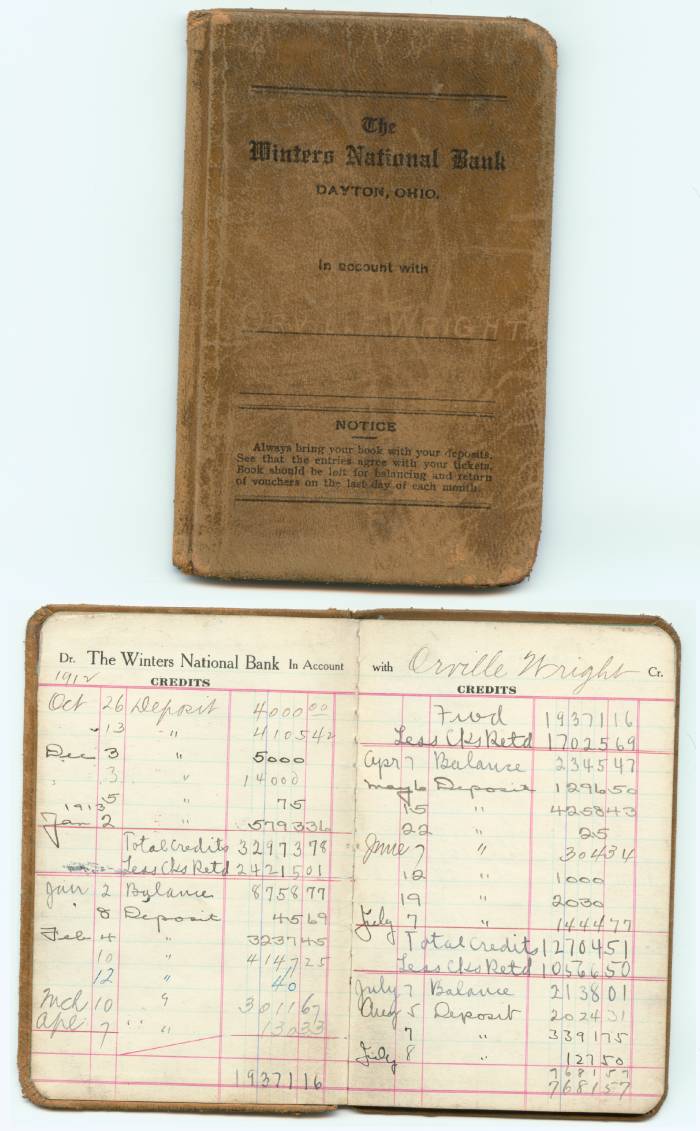 The
Winters National Bank
DAYTON, OHIO.
In account with
ORVILLE WRIGHT
NOTICE
Always bring your book with your deposits.
See that the entries agree with your tickets.
Book should be left for balancing and return
of vouchers on the last day of each month.
Dr. The Winters National Bank In Account
1912
CREDITS
Oct 26 Deposit 4000 00
" 13 " 4105 42
Dec 3 " 5000
" 3 " 14000
" 5 " 75
1913
Jan 2 " 5793 36
Total Credits 32973 78
Less Cks Retd 24215 01
Jan 2 Balance 8758 77
" 8 Deposit 45 69
Feb 4 " 3237 45
10 " 4147 25
12 " 40
Mch 10 " 3011 67
Apl 7 " " 130 33
19371 16
with Orville Wright Cr.
CREDITS
Fwd 19371 16
Less Cks Retd 17025 69
Apr 7 Balance 2345 47
May 6 Deposit 1296 50
15 " 4258 43
22 " 25
June 7 " 304 34
12 " 1000
19 " 2030
July 7 " 1444 77
Total Credits 12704 51
Less Cks Retd 10566 50
July 7 Balance 2138 01
Aug 5 Deposit 2024 31
7 " 3391 75
July 8 " 127 50
7681 57
7681 57